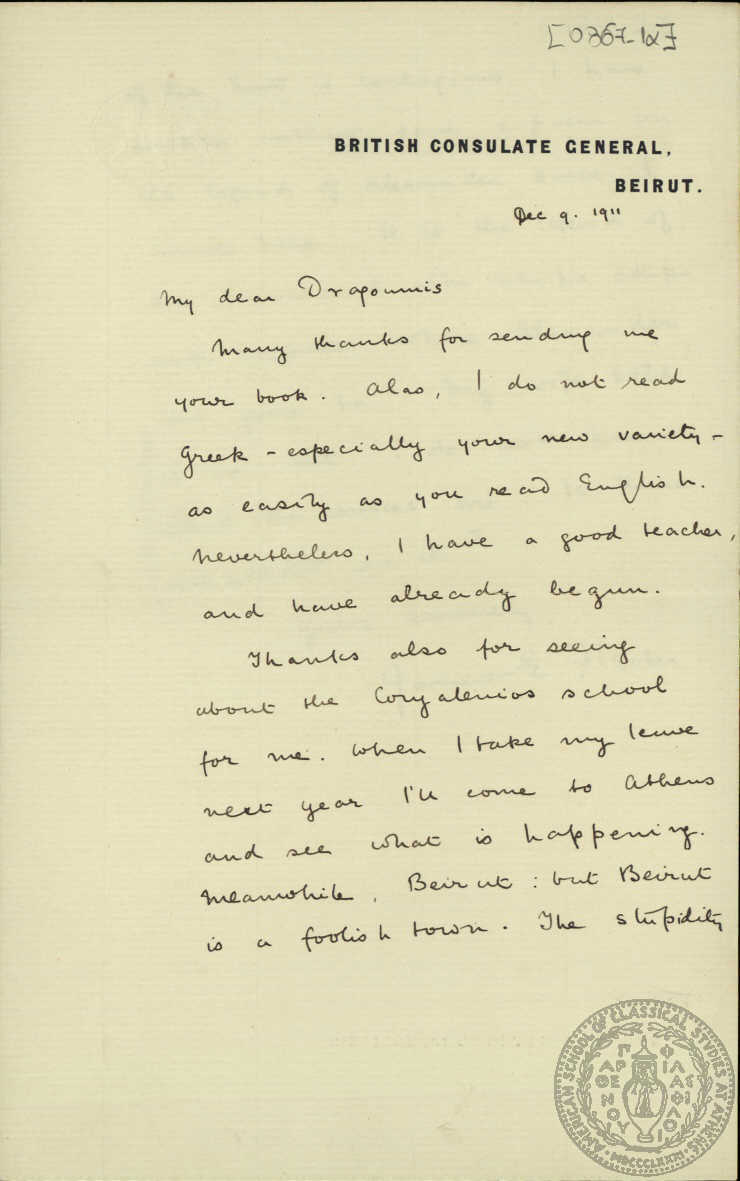 [0367-1α]
BRITISH CONSULATE GENERAL,
BEIRUT.
Dec 9. 1911
My dear Dragoumis
Many thanks for sending me
your book. Alas, I do not read
Greek - especially your new variety -
as easily as you read English.
Nevertheless, I have a good teacher,
and have already begun.
Thanks also for seeing
about the Corgalenios school
for me. When I take my leave
next year I'll come to Athens
and see what is happening.
Meanwhile, Beirut : but Beirut
is a foolish town. The stupidity
AMERICAN SCHOOL OF CLASSICAL STUDIES AT ATHENS
ΠΑΡΘΕΝΟΥ ΦΙΛΑΣ ΦΙΛΟΙ
MDCCCLXXXI